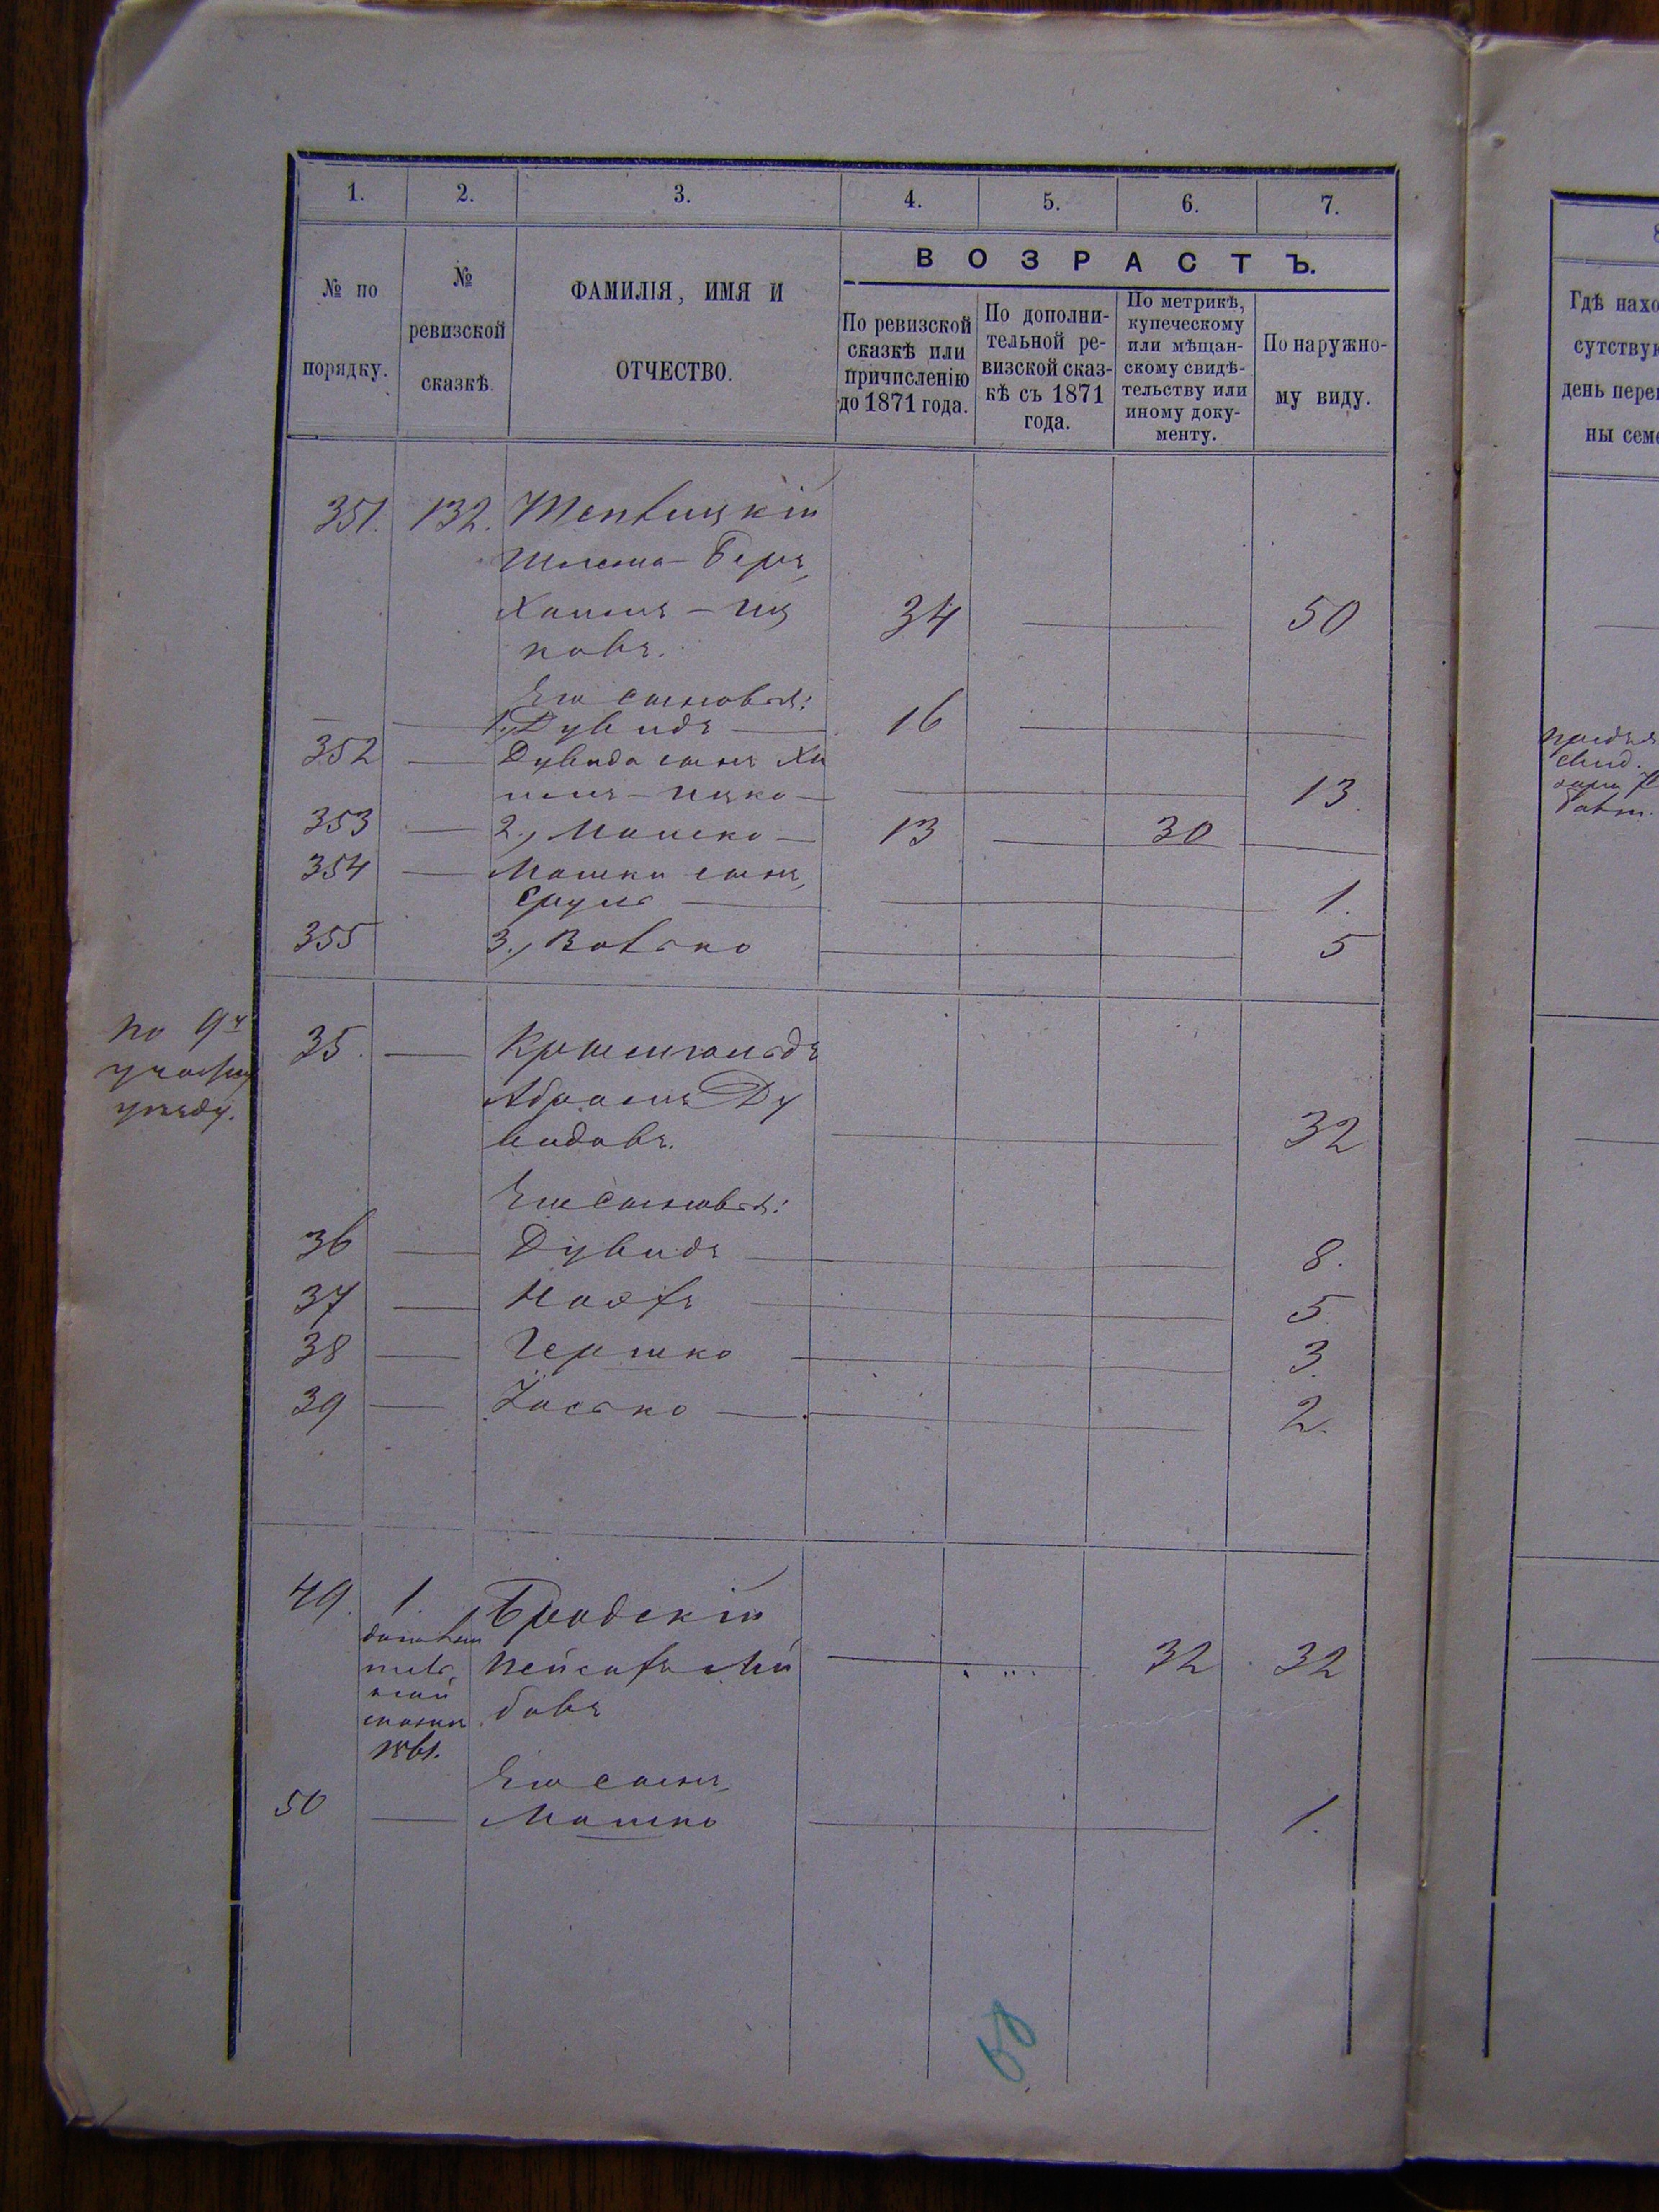 1. 2. 3. 4. 5. 6. 7.
№ по порядку.
№ ревизской сказкѣ.
ФАМИЛІЯ, ИМЯ И
ОТЧЕСТВО.
ВОЗРАСТЪ.
По ревизской
сказкѣ или
причисленію
до 1871 года.
По дополни-
тельной ре-
визской сказ-
кѣ съ 1871
года.
По метрикѣ,
купеческому
или мѣщан-
скому свидѣ-
тельству или
иному доку-
менту.
По наружно-
му виду.
351. 132.
Шлема-Беръ
Хаимъ-Иц
ковъ. 34 50
Его сыновья:
1. Дувидъ 16
352 Дувида сынъ Ха
имъ-Ицко 13
353 2., Мошко 13 30
354 Мошки сынъ
Сруль 1.
355 3., Волько 5
по 9у
участку
уѣзду.
35.
Абрамъ Ду
видовъ. 32
Его сыновья:
36 Дувидъ 8.
37 5
38 Гершко 3
39 Іосько 2.
49. 1. Бродскій
дополни
тель
ной
сказки
Пейсахъ Лей
бовъ 32 32
Его сынъ
50 Мошко 1.
68
Гдѣ нахо
сутствую
день перем
ны семе